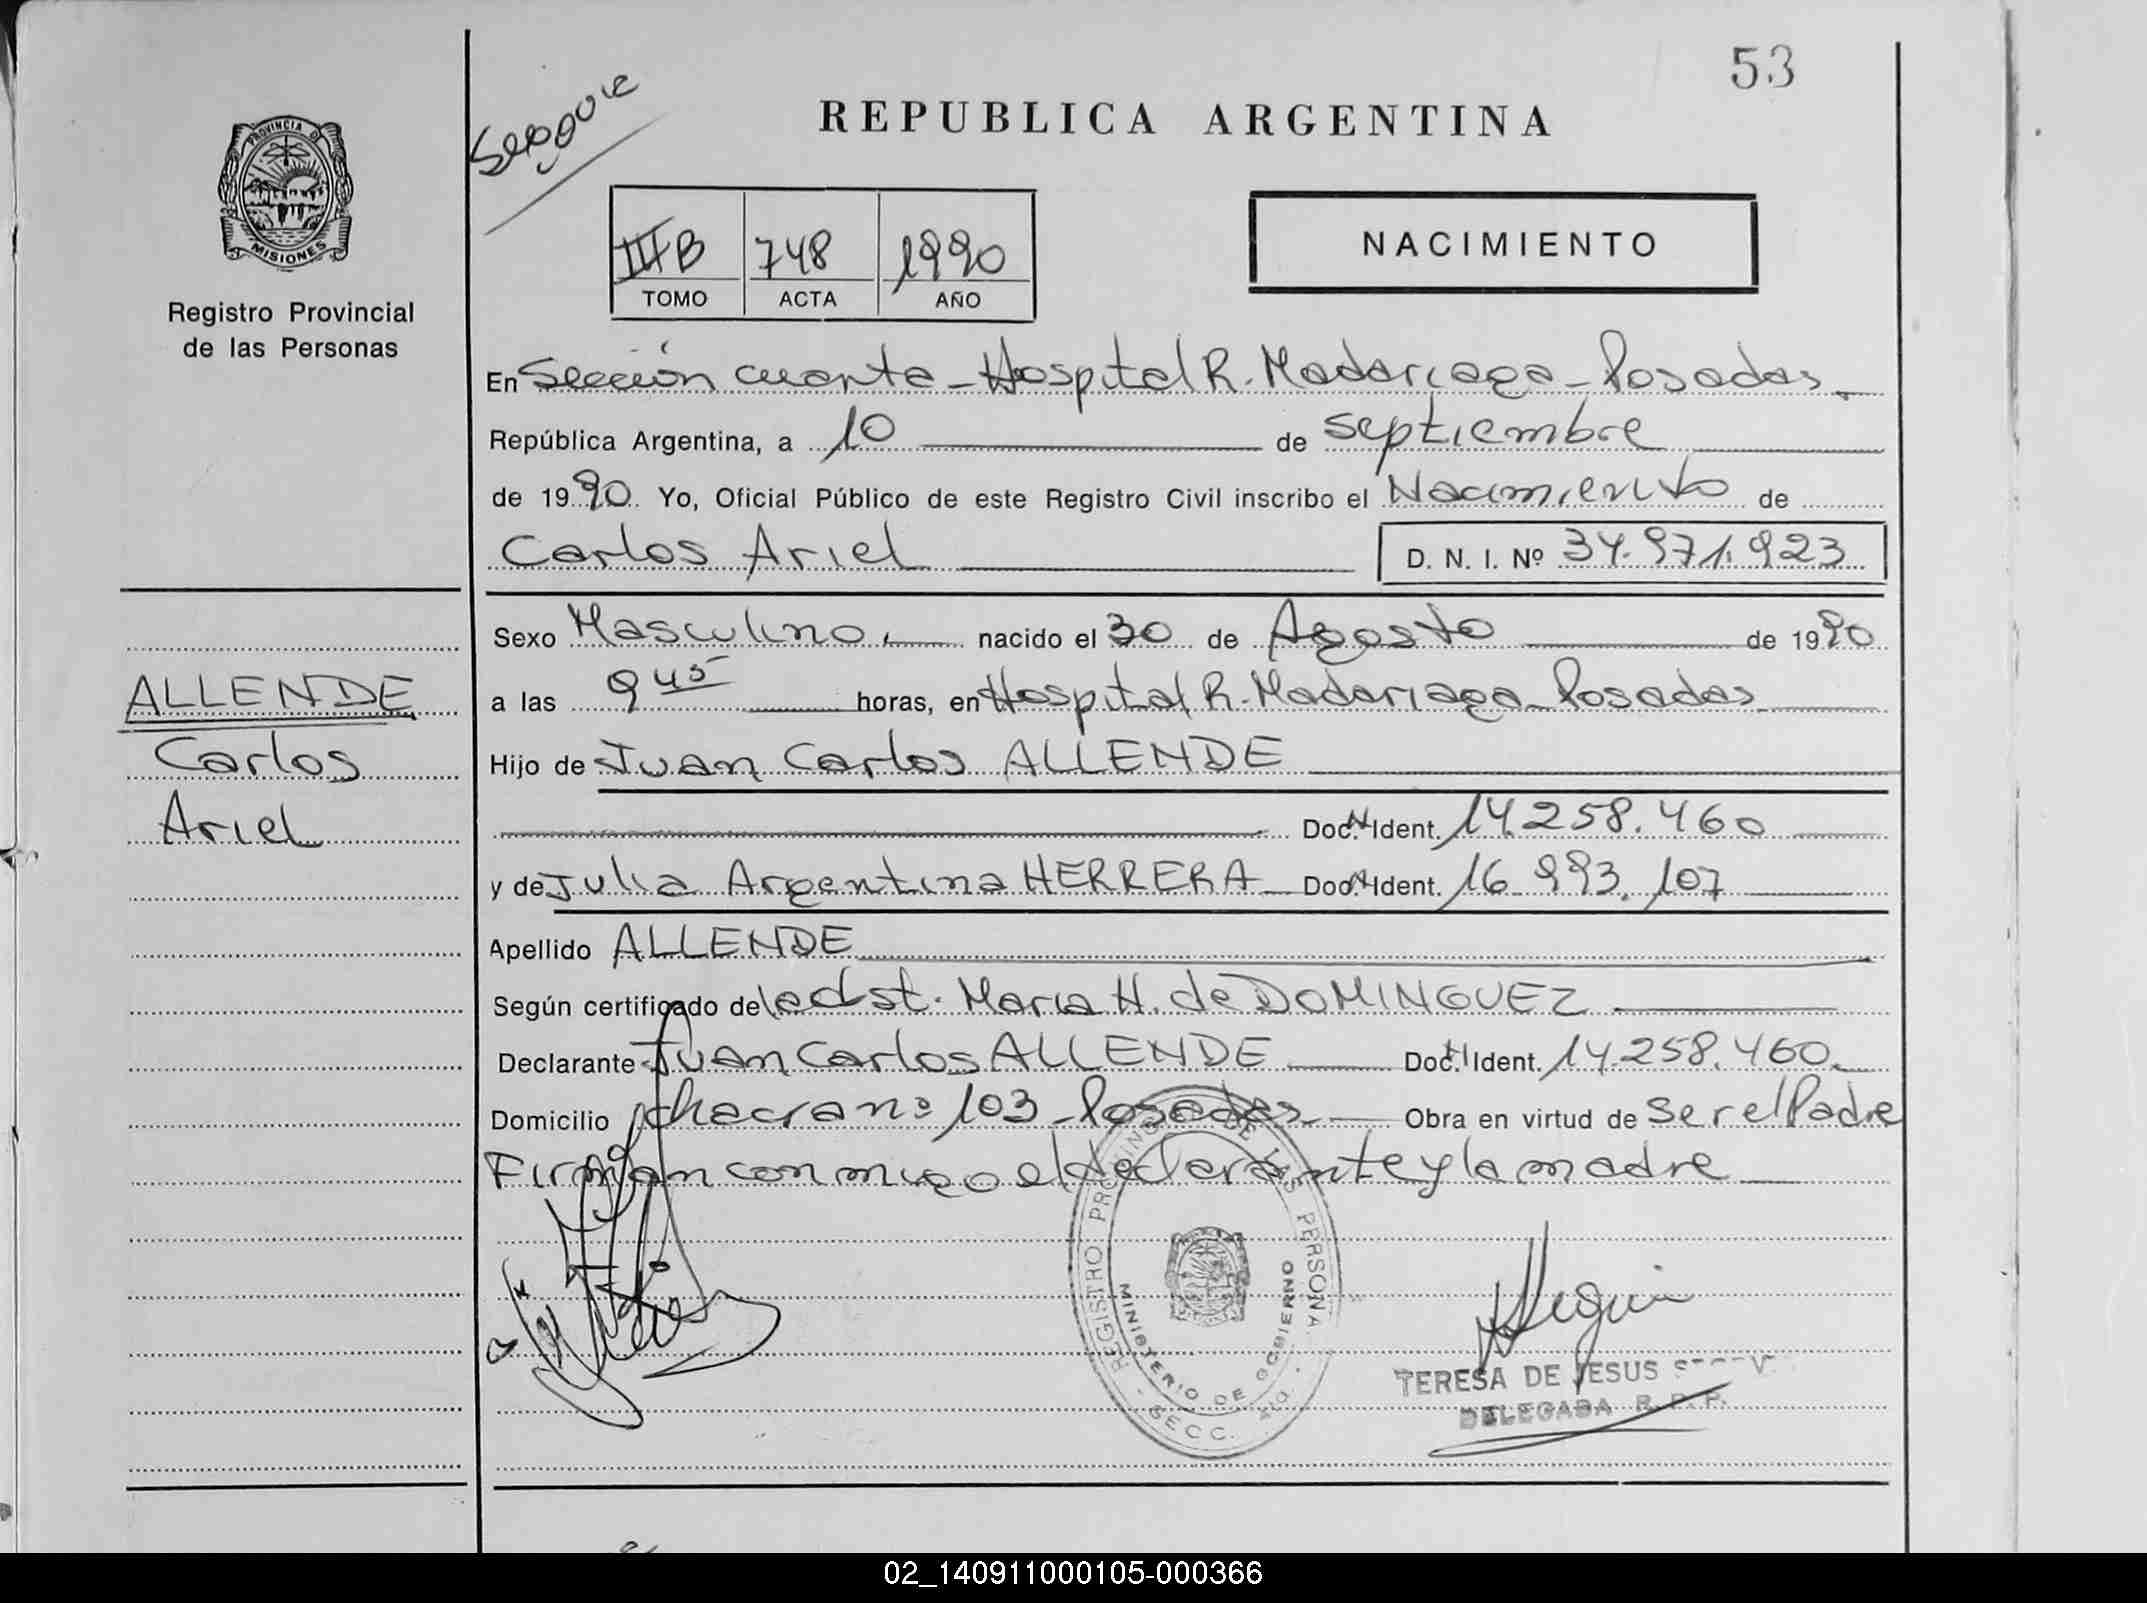 53
REPUBLICA ARGENTINA
PROVINCIA D
MISIONES
Registro Provincial
de las Personas
III B 748 1990
TOMO ACTA AÑO
NACIMIENTO
En Sección cuarta - Hospital R. Madariaga - Posadas
República Argentina, a 10 de septiembre
de 1990 Yo, Oficial Público de este Registro Civil inscribo el Nacimiento de
Carlos Ariel D. N. I. Nº 34.971.923
Sexo Masculino nacido el 30 de Agosto de 1990
a las 9 45 horas, en Hospital R. Madariaga Posadas
Hijo de Juan Carlos ALLENDE
Doc. N Ident. 14.258.460
y de Julia Argentina HERRERA Doc. N Ident. 16.993.107
Apellido ALLENDE
Según certificado de la obst. Maria H. de DOMINGUEZ
Declarante Juan Carlos ALLENDE Doc. N Ident. 14.258.460
Domicilio chacra nº 103 - Posadas Obra en virtud de ser el Padre
Firman conmigo el declarante y la madre
ALLENDE
Carlos
Ariel
REGISTRO DE LAS PERSONA
MINISTERIO DE GOBIERNO
SECC.
TERESA DE JESUS
DELEGADA R. P. P.
02_140911000105-000366